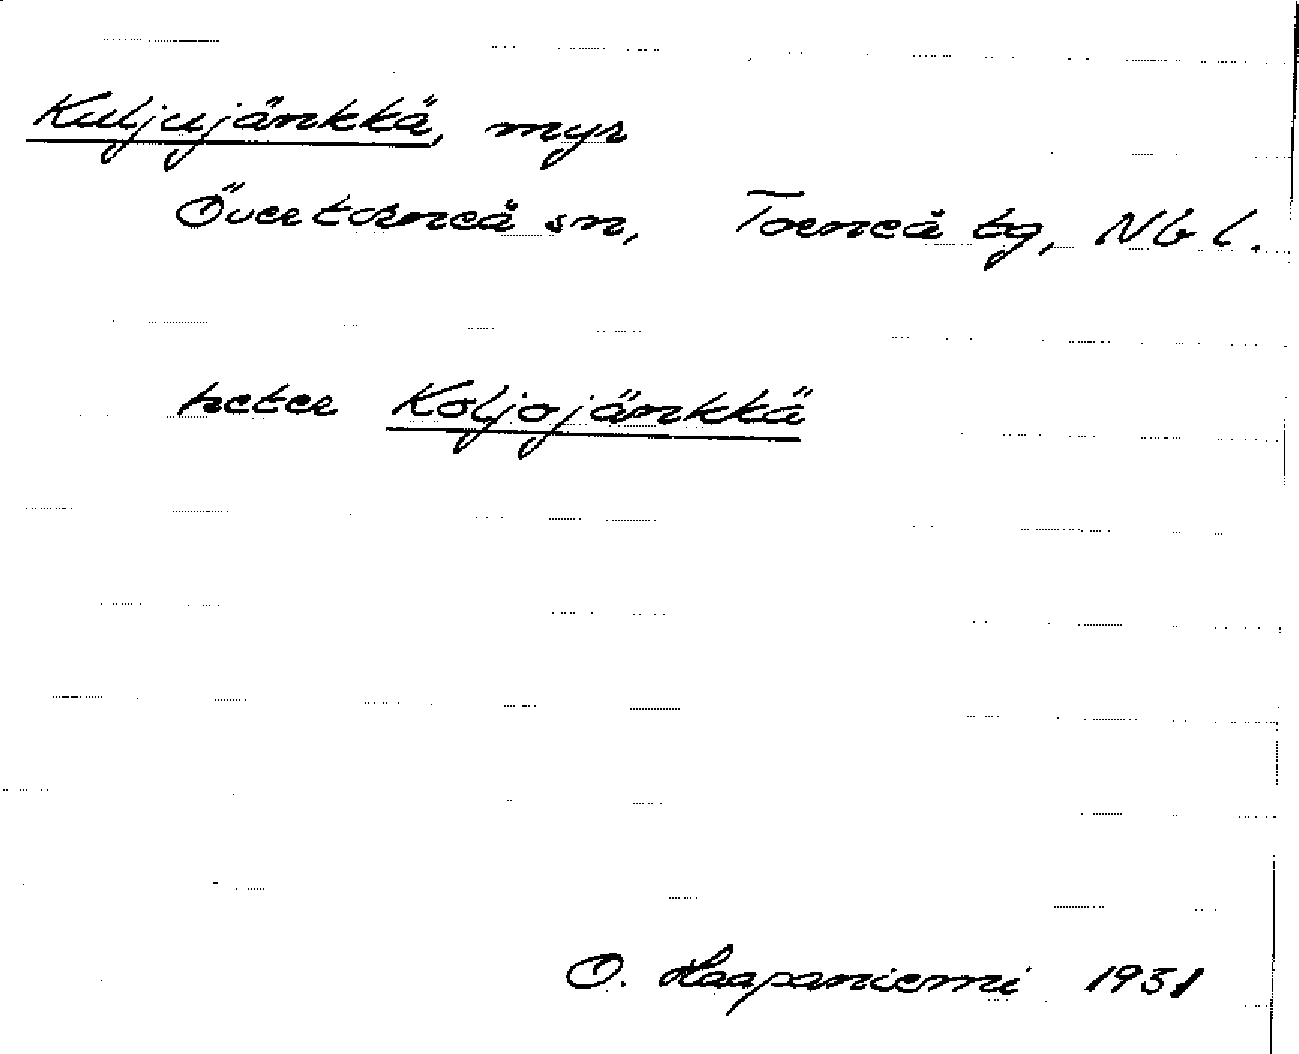 Kuljujänkkä, myr
Övertorneå sn, Torneå tg, Nb l.
heter Koljojänkkä
O. Haapaniemi 1931